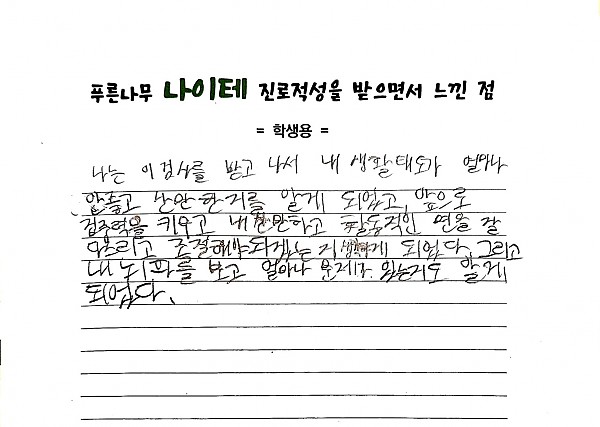 푸른나무 나이테 진로적성을 받으면서 느낀 점
= 학생용 =
나는 이검사를 받고 나서 내 생활태도가 얼마나
안좋고 산만한거를 알게 되었고, 앞으로
집중력을 키우고 내 산만하고 활동적인 면을 잘
살리고 조절해야되겠는지 생각하게 되었다. 그리고
내 뇌파를 보고 얼마나 문제가 있는지도 알게
되었다.